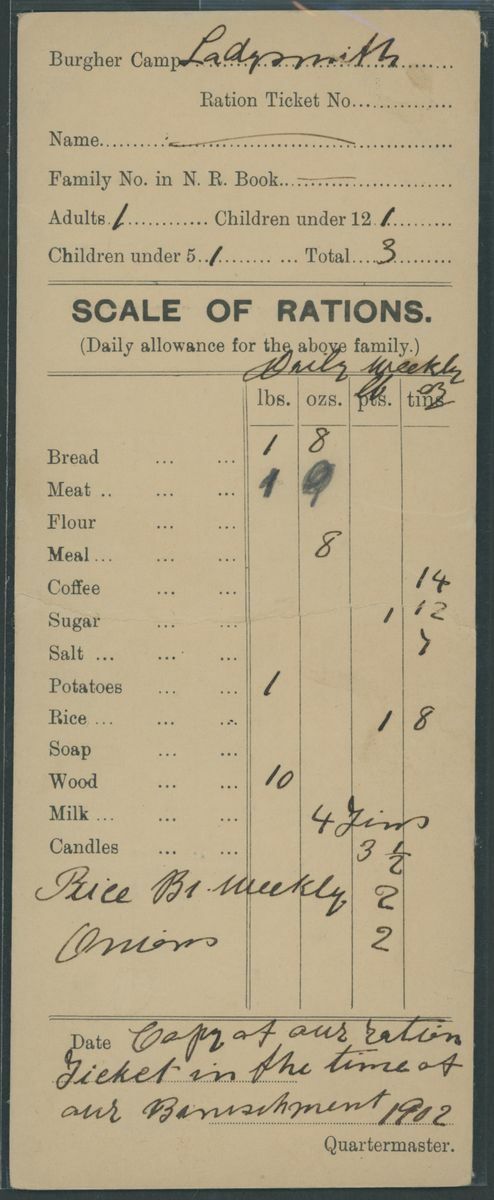 Burgher Camp Ladysmith
Ration Ticket No.
Name
Family No. in N. R. Book
Adults 1 Children under 12 1
Children under 5 1 Total 3
SCALE OF RATIONS.
(Daily allowance for the above family.)
Daily Weekly
lbs. ozs. pts. lb tins oz
Bread ... ... 1 8
Meat .. ... 1 9
Flour ... ...
Meal ... ... 8
Coffee ... ... 14
Sugar ... ... 1 12
Salt ... ... ... 7
Potatoes ... ... 1
Rice ... ... ... 1 8
Soap ... ...
Wood ... ... 10
Milk ... ... 4 Tins
Candles ... ... 3 1/2
Rice Bi Weekly 2
Onions 2
Date Copy of our ration
Ticket in the time of
our Banischment 1902
Quartermaster.